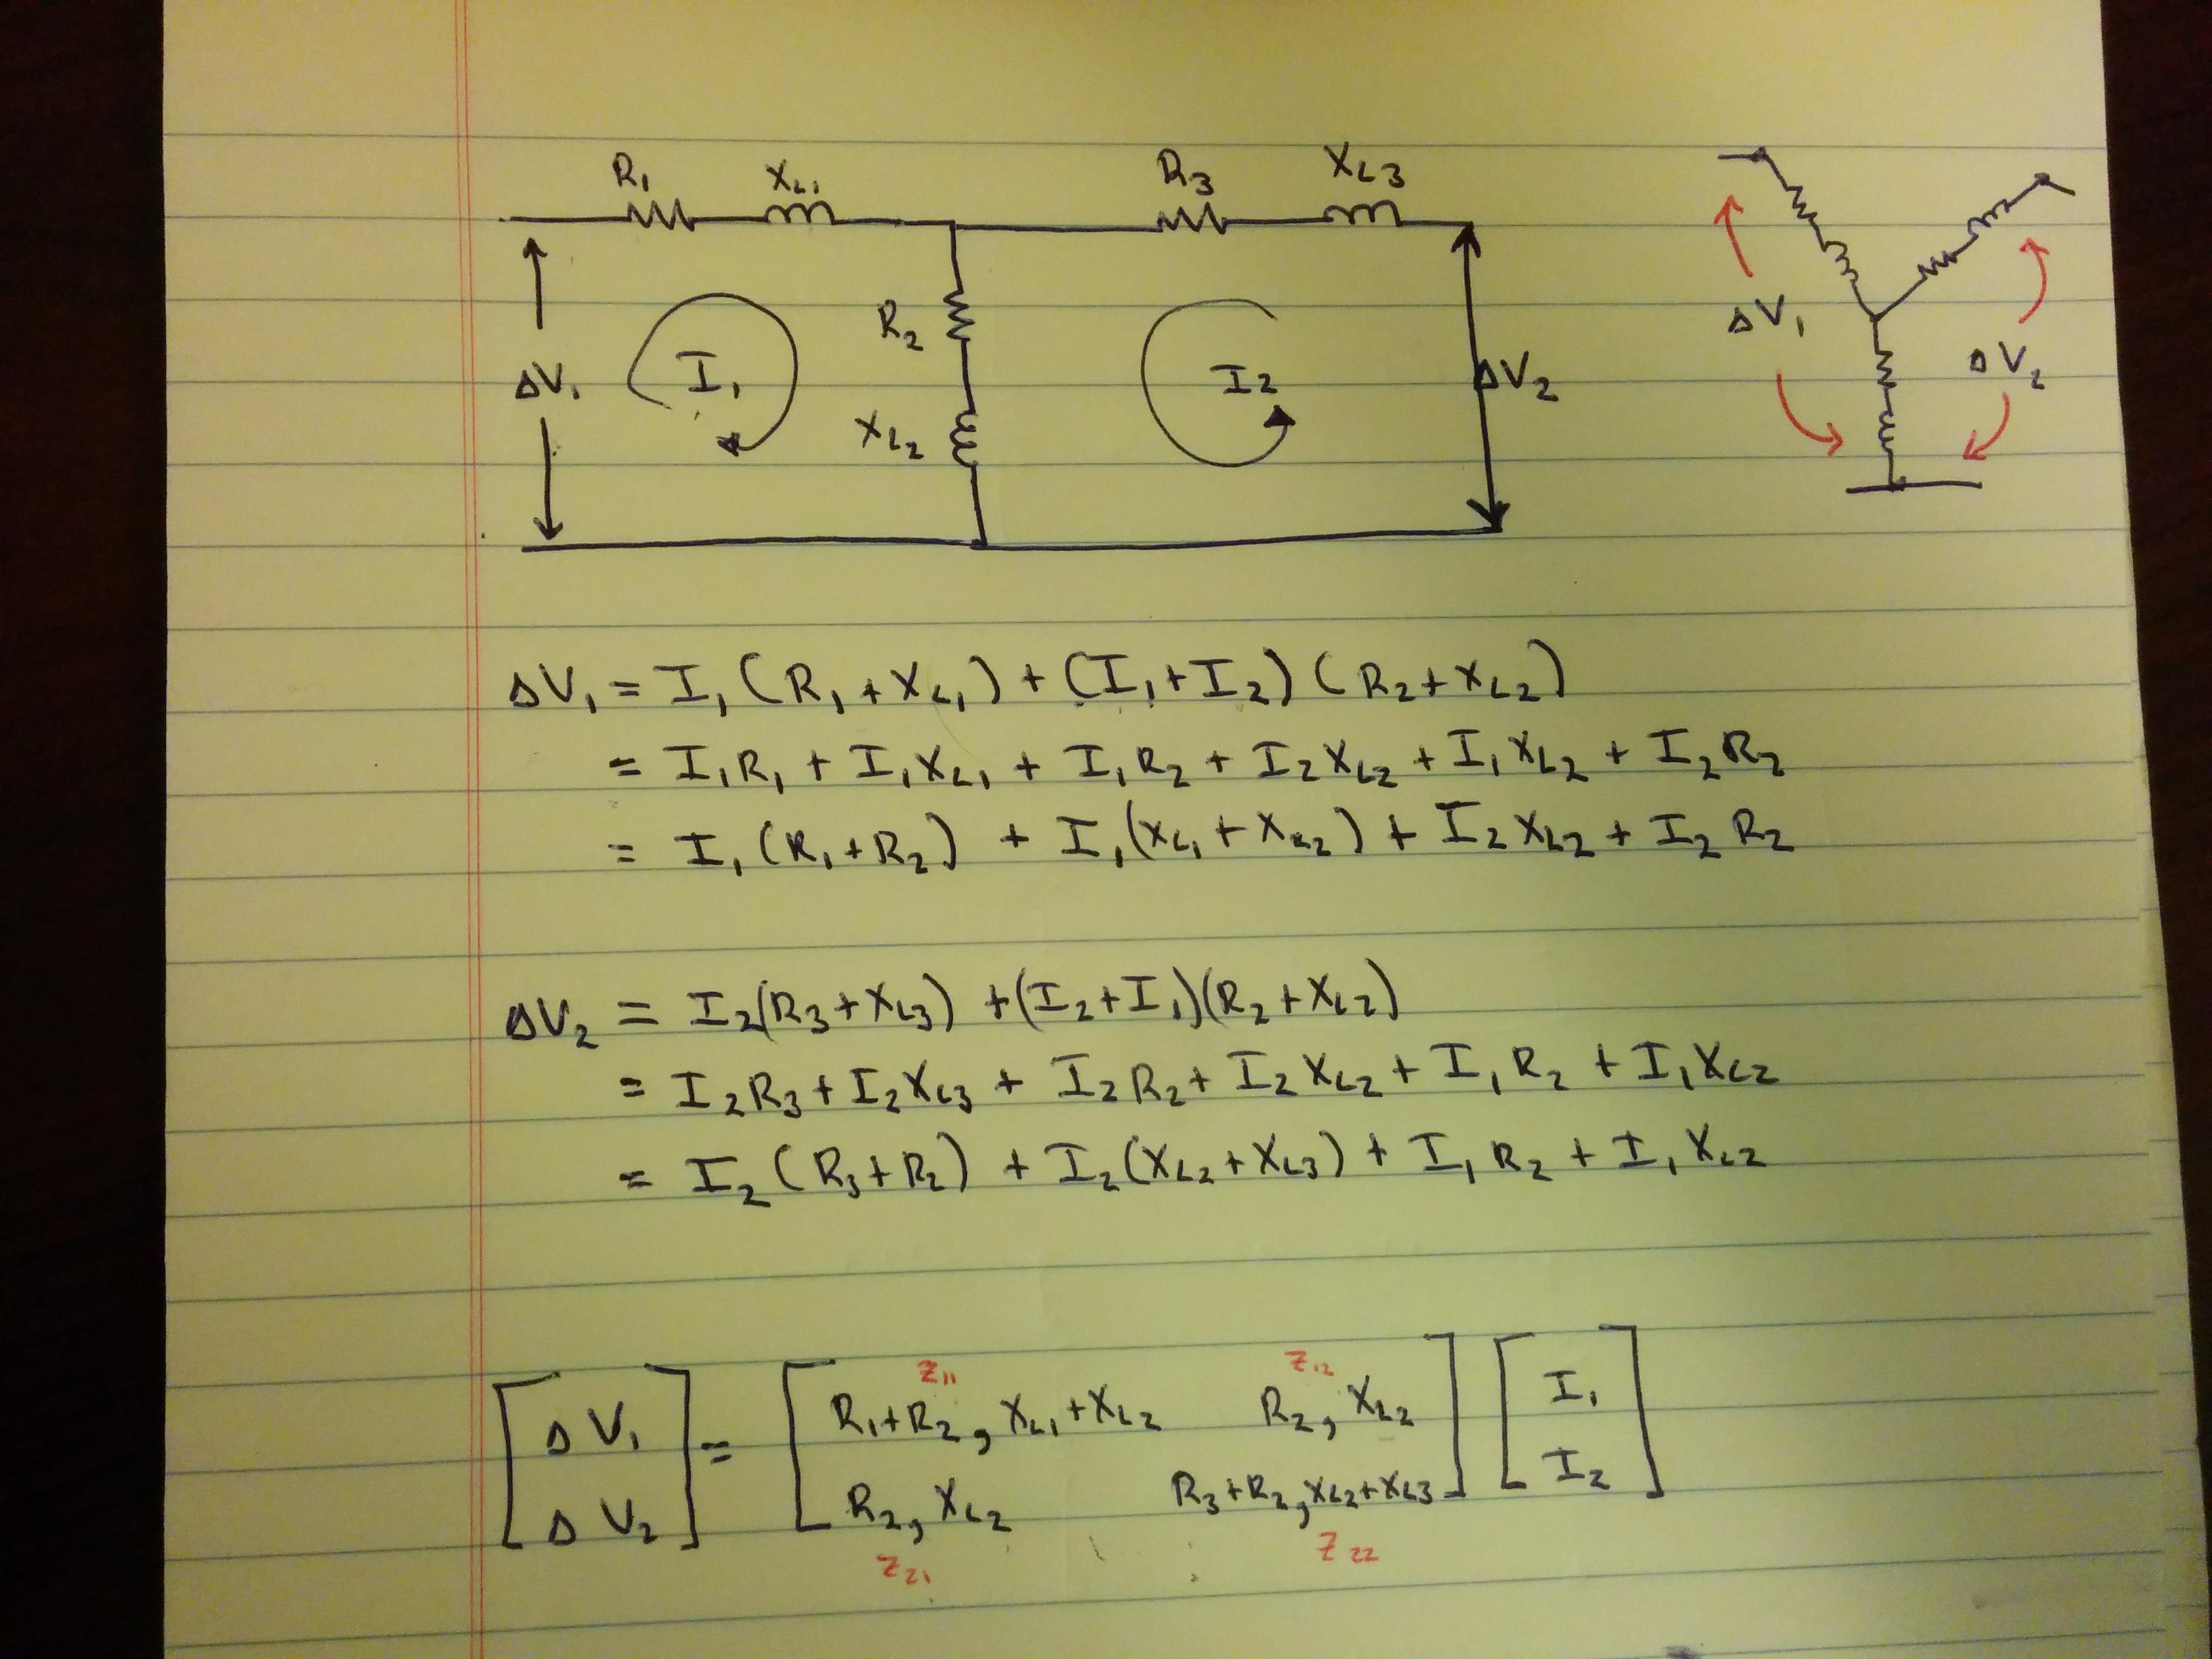 R₁ X_L₁ R₃ X_L3
R₂
ΔV₁ I₁ I₂ ΔV₂
X_L₂
ΔV₁ ΔV₂
ΔV₁ = I₁(R₁+X_L₁) + (I₁+I₂)(R₂+X_L2)
= I₁R₁ + I₁X_L₁ + I₁R₂ + I₂X_L2 + I₁X_L2 + I₂R₂
= I₁(R₁+R₂) + I₁(X_L₁+X_L2) + I₂X_L2 + I₂R₂
ΔV₂ = I₂(R₃+X_L3) + (I₂+I₁)(R₂+X_L2)
= I₂R₃ + I₂X_L3 + I₂R₂ + I₂X_L2 + I₁R₂ + I₁X_L2
= I₂(R₃+R₂) + I₂(X_L2+X_L3) + I₁R₂ + I₁X_L2
Z₁₁ Z₁₂
ΔV₁ = R₁+R₂, X_L₁+X_L2 R₂, X_L2 I₁
ΔV₂ R₂, X_L2 R₃+R₂, X_L2+X_L3 I₂
Z₂₁ Z₂₂